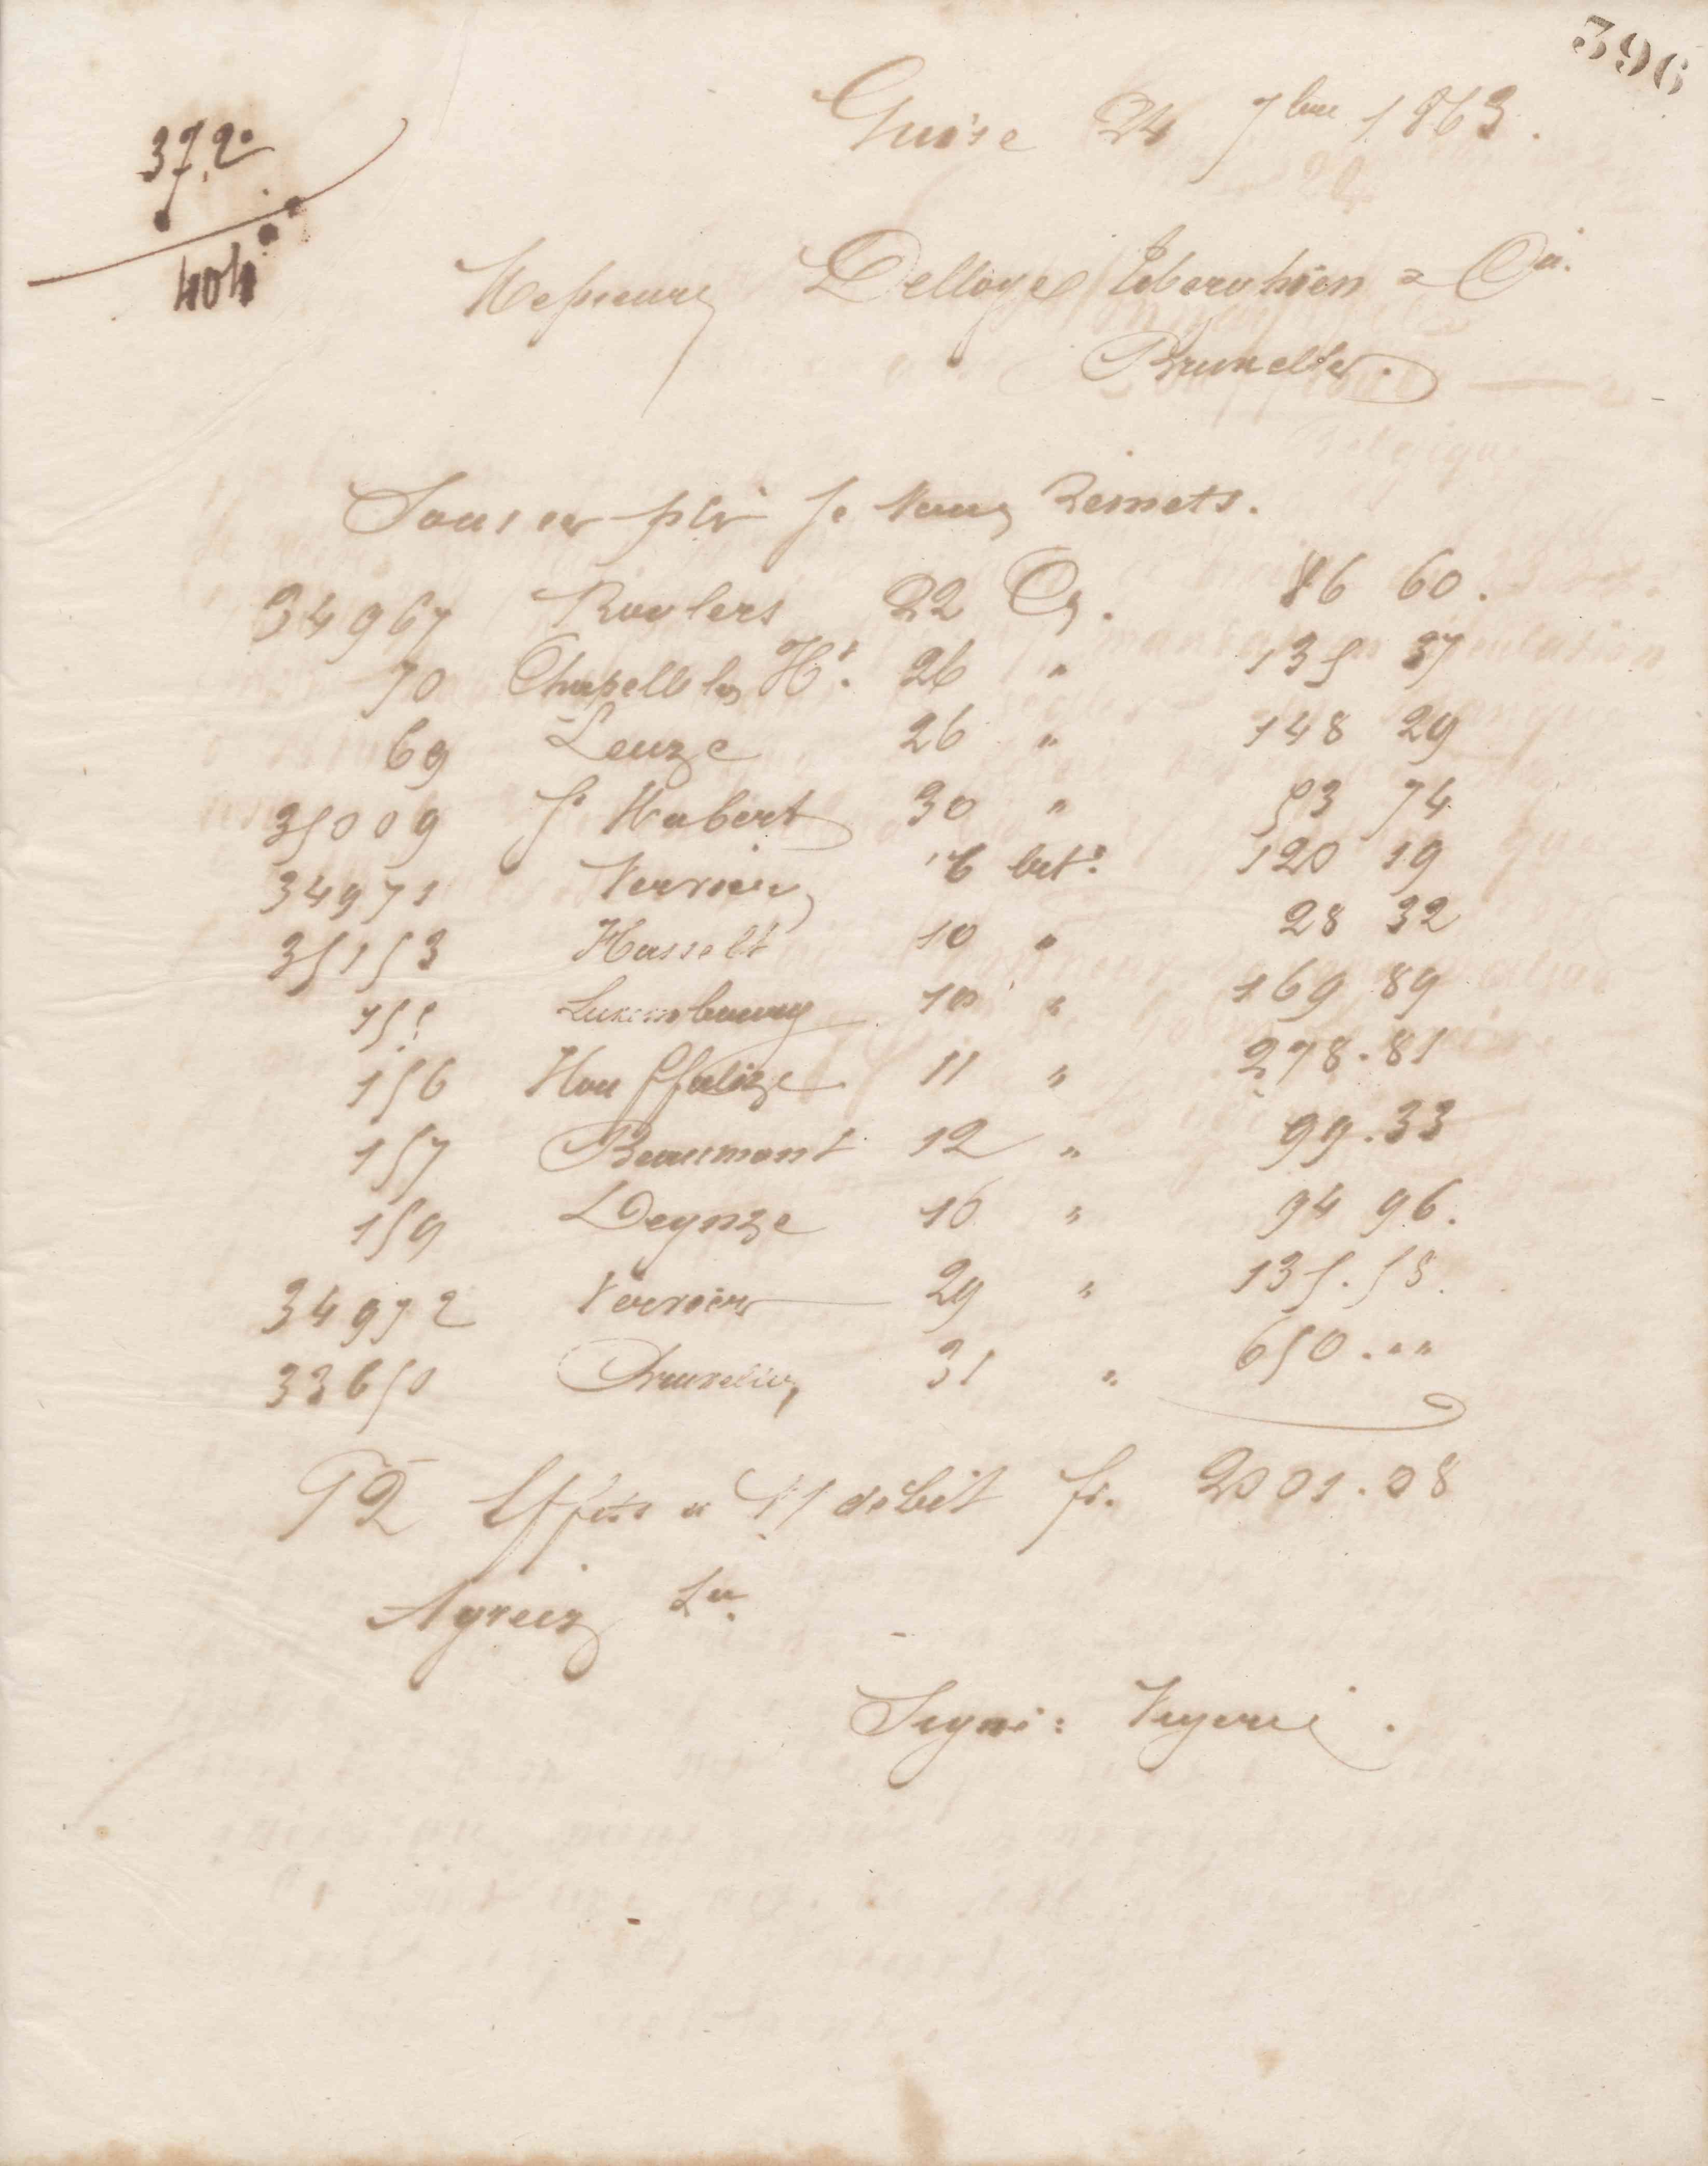 396
37,20
404
Guise 24 7bre 1863.
Messieurs Delloye Tiberghien & Cie.
Bruxelles.
Sous ce pli je vous Remets.
34967 Roulers 22 Ct. 86 60.
70 Chapelle les Ht. 26 " 135 37
69 Leuze 26 " 148 29
35009 St Hubert 30 " 53 74
34971 Verviers 6 oct: 120 19
35153 Hasselt 10 " 28 32
155 Luxembourg 10 " 169 89
156 Houffalize 11 " 278.81
157 Beaumont 12 " 99.33
159 Deynze 16 " 94 96.
34972 Verviers 29 " 135.58.
33650 Bruxelles 31 " 650.""
12 Effets a V/ débit fr. 2001.08
Agréez
Signé: